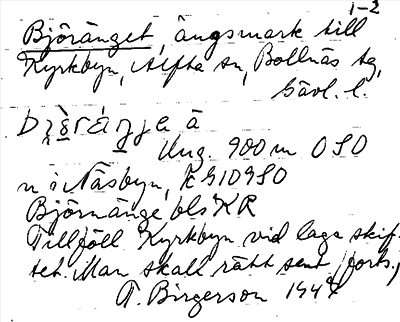 1-2
Björänget, ängsmark till
Kyrkbyn, Alfta sn, Bollnäs tg,
Gävl. l.
å
Ung. 900 m OSO
Näsbyn,
Björnänge bls KR
Tillföll Kyrkbyn vid laga skif-
tet. Man skall rätt sent (forts.)
T. Birgerson 1949